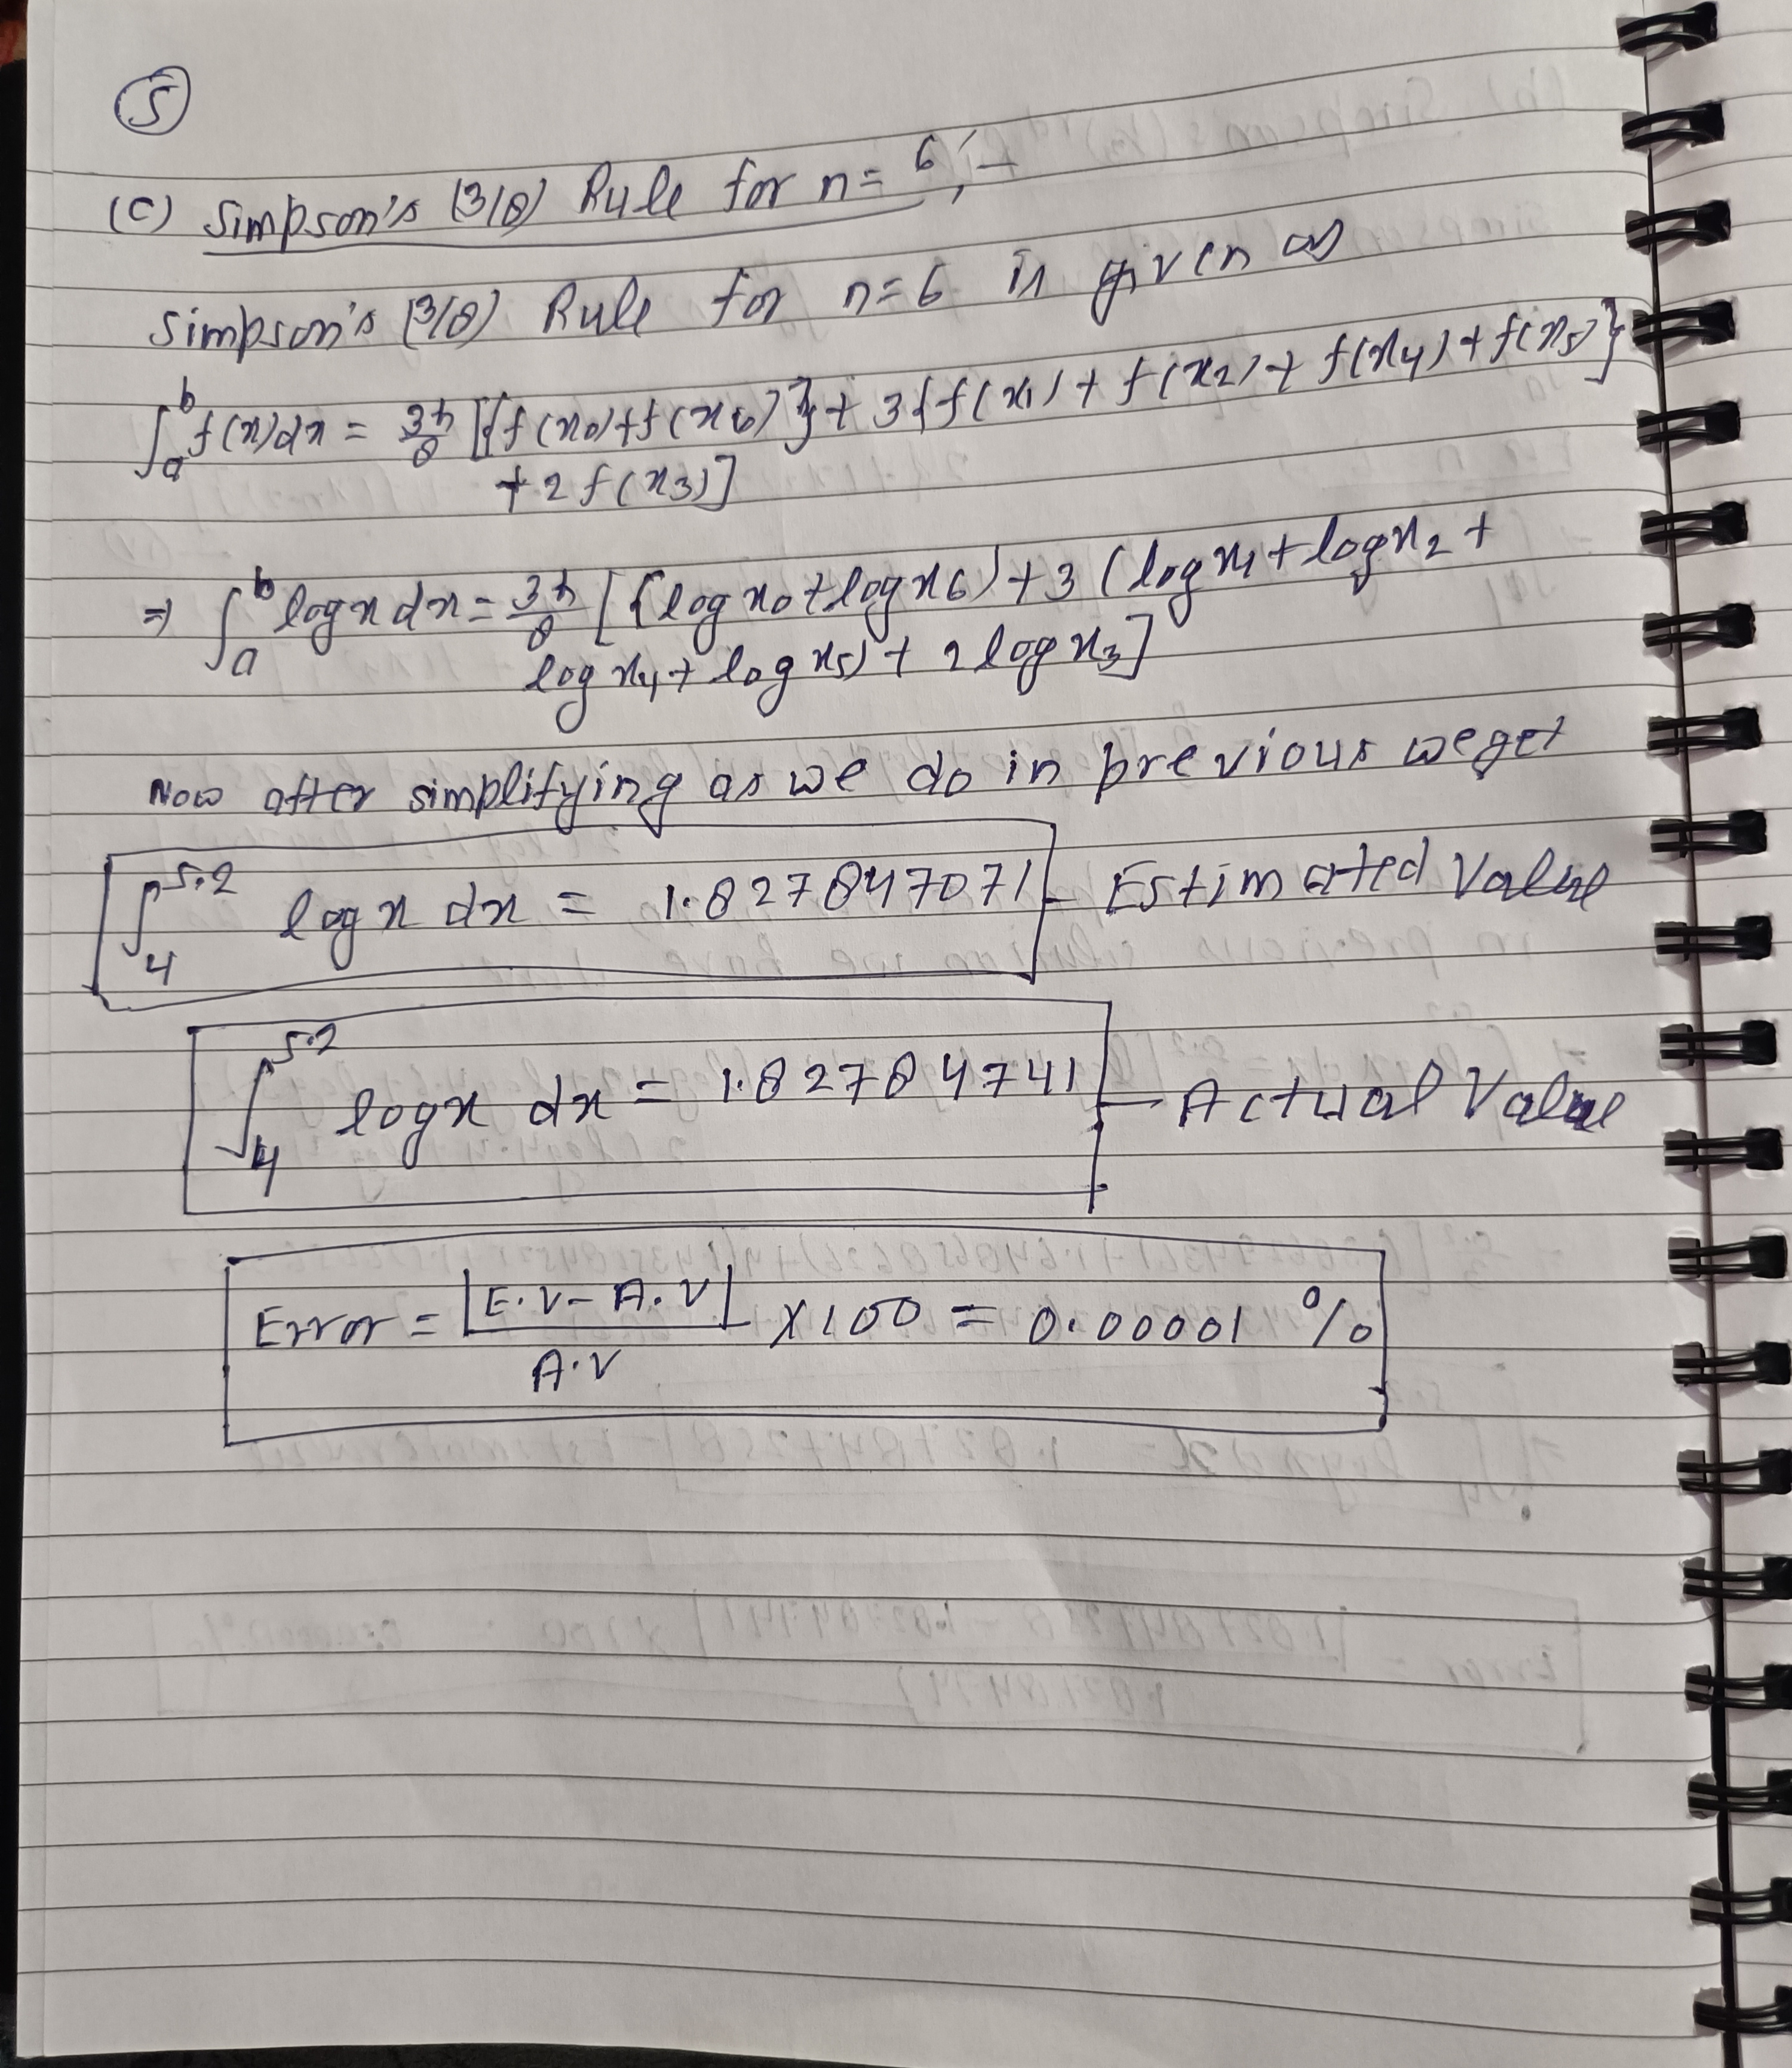 5
(C) Simpson's (3/8) Rule for n = 6 ;-
Simpson's (3/8) Rule for n=6 is given as
∫ₐᵇ f(x)dx = 3h/8 [{f(x₀)+f(x₆)}+ 3{f(x₁)+ f(x₂)+ f(x₄)+f(x₅)}
+ 2 f(x₃)]
⇒ ∫ₐᵇ logx dx = 3h/8 [{logx₀+logx₆)+3 (logx₁+logx₂+
logx₄+logx₅)+ 2logx₃]
Now after simplifying as we do in previous we get
∫₄^5.2 logx dx = 1.827847071 - Estimated Value
∫₄^5.2 logx dx = 1.82784741 - Actual Value
Error = |E.V- A.V| / A.V X100 = 0.00001 %